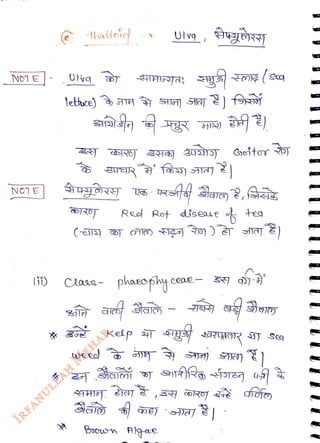 (e) thalloid → Ulva, सेफ्यूलेरस
NOTE Ulva को सामान्यतः समुद्री सलाद (Sea
lettuce) के नाम से जाना जाता है। जिसमें
आयोडीन की प्रचुर मात्रा होती है।
इस कारण इसका उपयोग Goitor रोग
के उपचार में किया जाता है।
NOTE सेफ्यूलेरस एक परजीवी शैवाल है, जिसके
कारण Red Rot disease of tea
(चाय का लाल सड़न रोग) हो जाता है।
(ii) Class - phaeophyceae - इस वर्ग में
आने वाली शैवाले - सबसे बड़ी शैवाल
* इन्हें Kelp या समुद्री खरपतवार या Sea
weed के नाम से जाना जाता है।
* इन शैवालों का शारीरिक संगठन पर्ण के
समान होता है, इस कारण इन्हें पर्णिल
शैवाले भी कहा जाता है।
* Brown Algae
IRFANULLAH